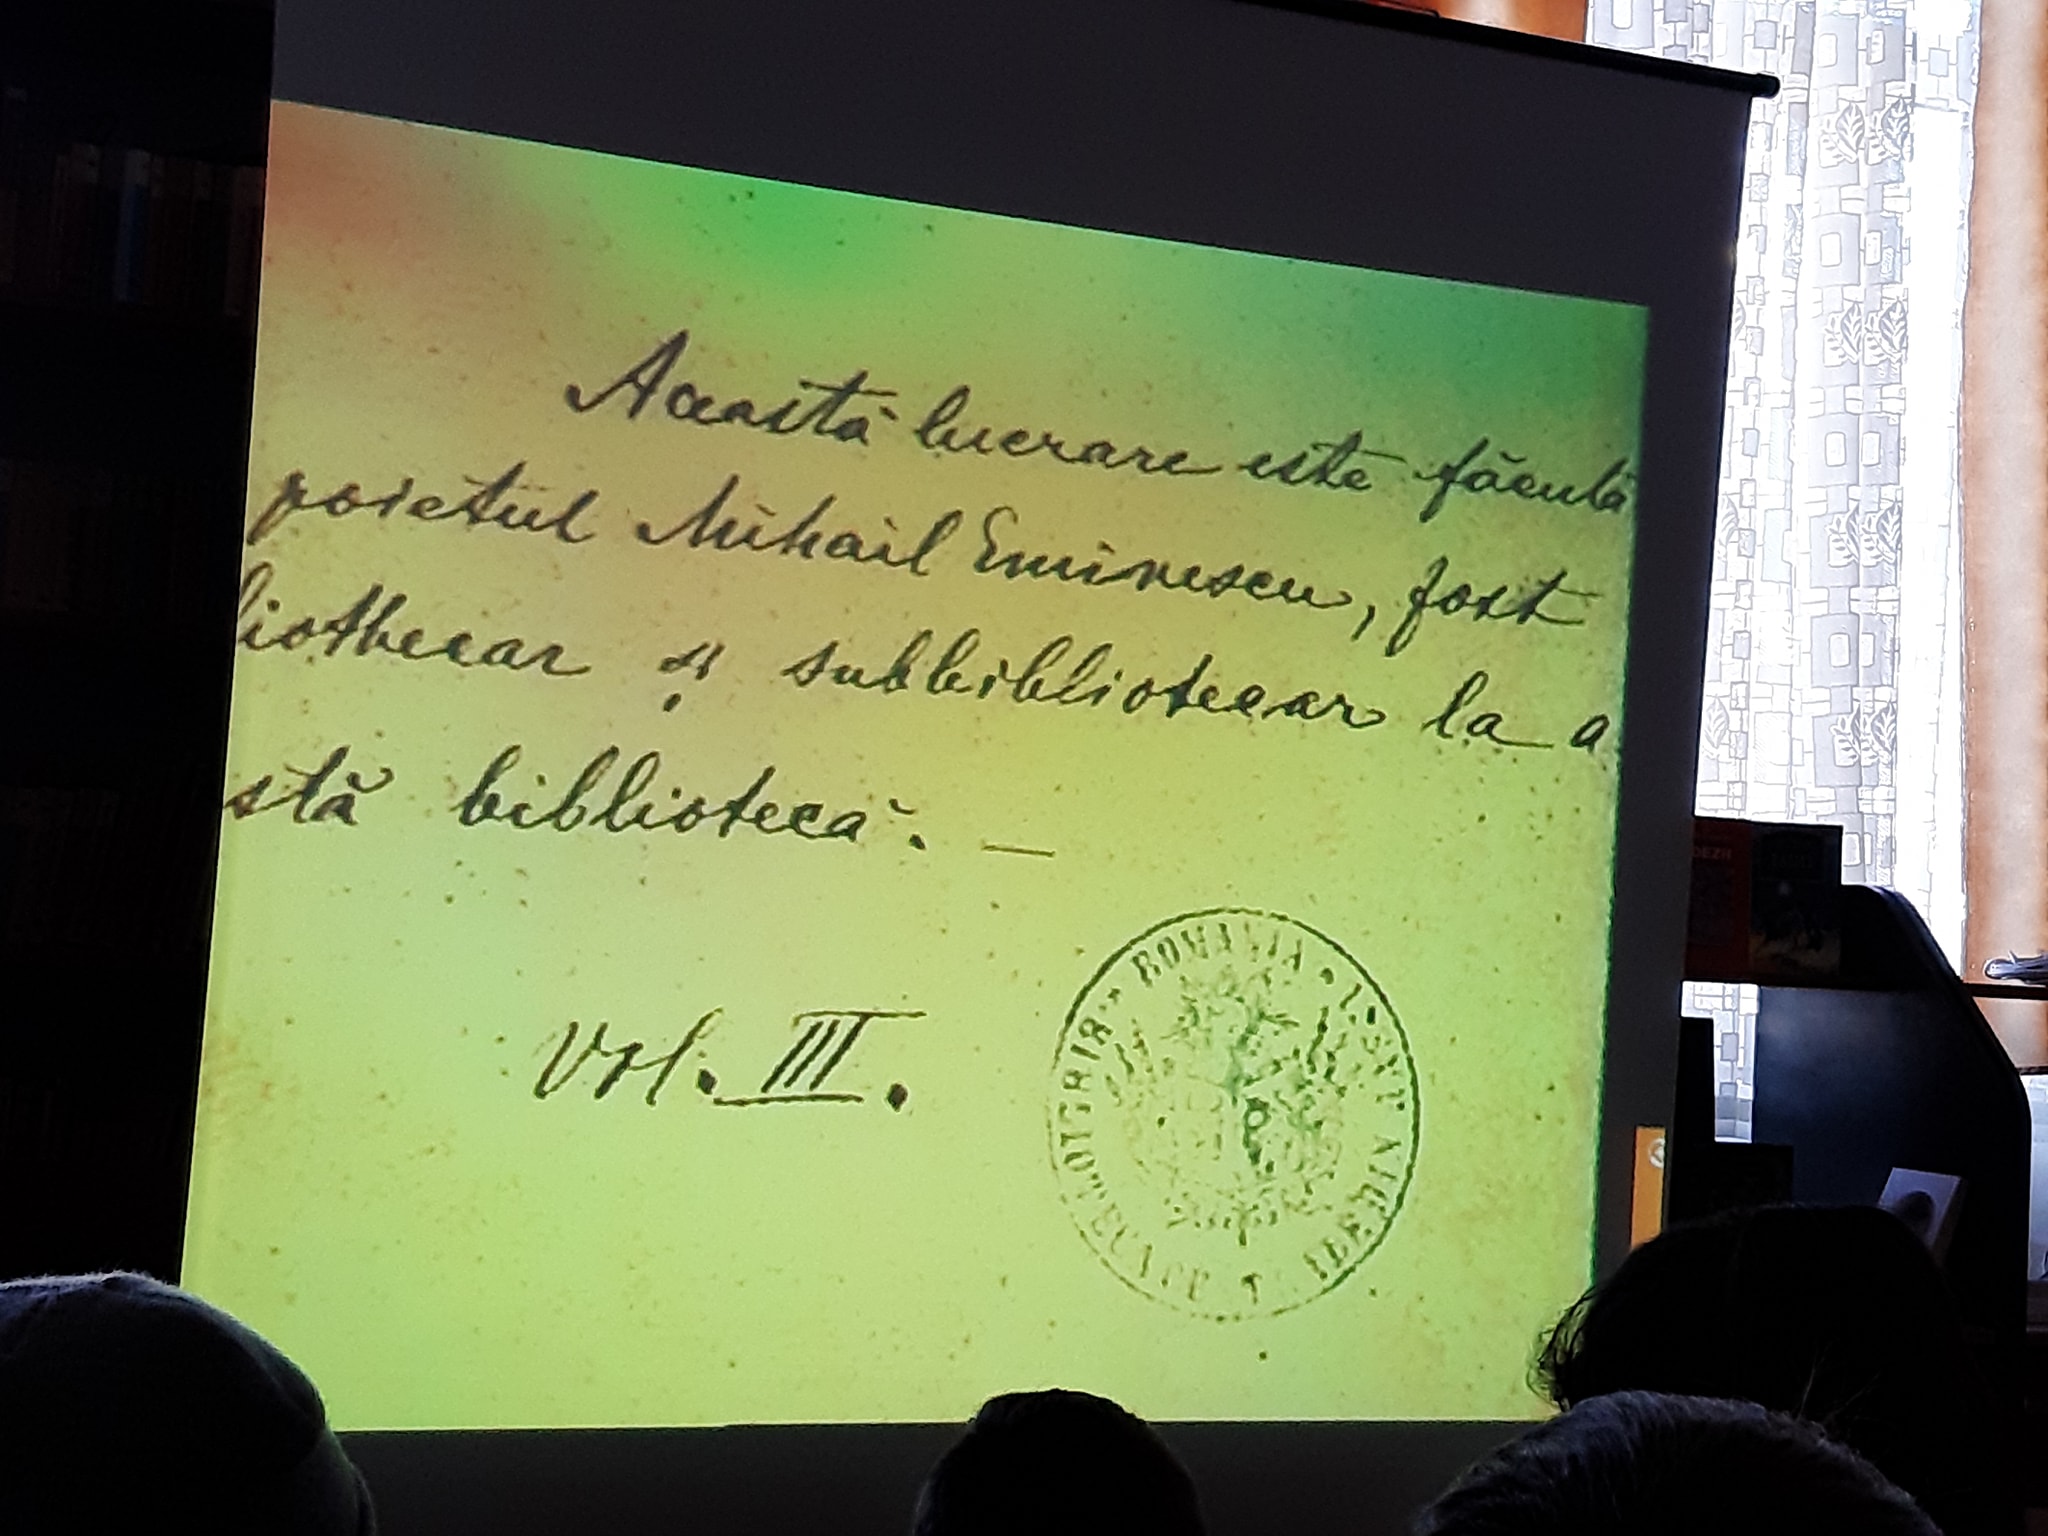 Această lucrare este făcută
poietul Mihail Eminescu, fost
liothecar și subbibliotecar la a
stă bibliotecă. —
Vol. III.
ROMANIA